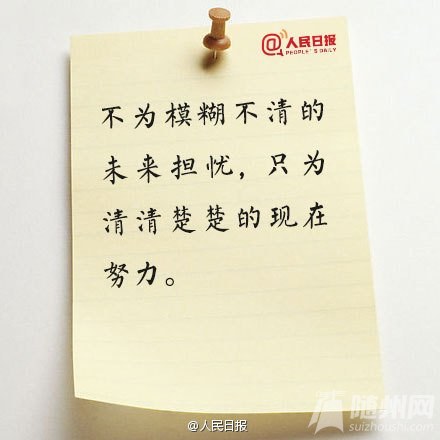 @人民日报
PEOPLE'S DAILY
不为模糊不清的
未来担忧，只为
清清楚楚的现在
努力。
@人民日报
随州网
suizhoushi.com